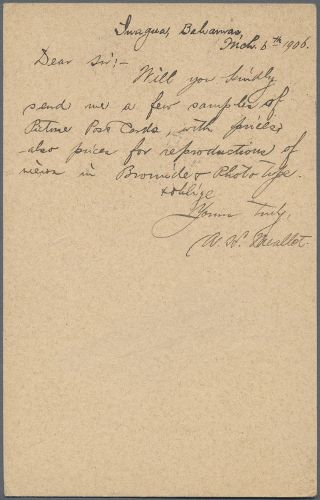 Inagua, Bahamas,
Mch. 6th 1906.
Dear Sir:-
Will you kindly
send me a few samples of
Picture Post Cards, with prices,
also prices for reproductions of
views in Bromide & Photo type.
& oblige
Yours truly,
A. H.